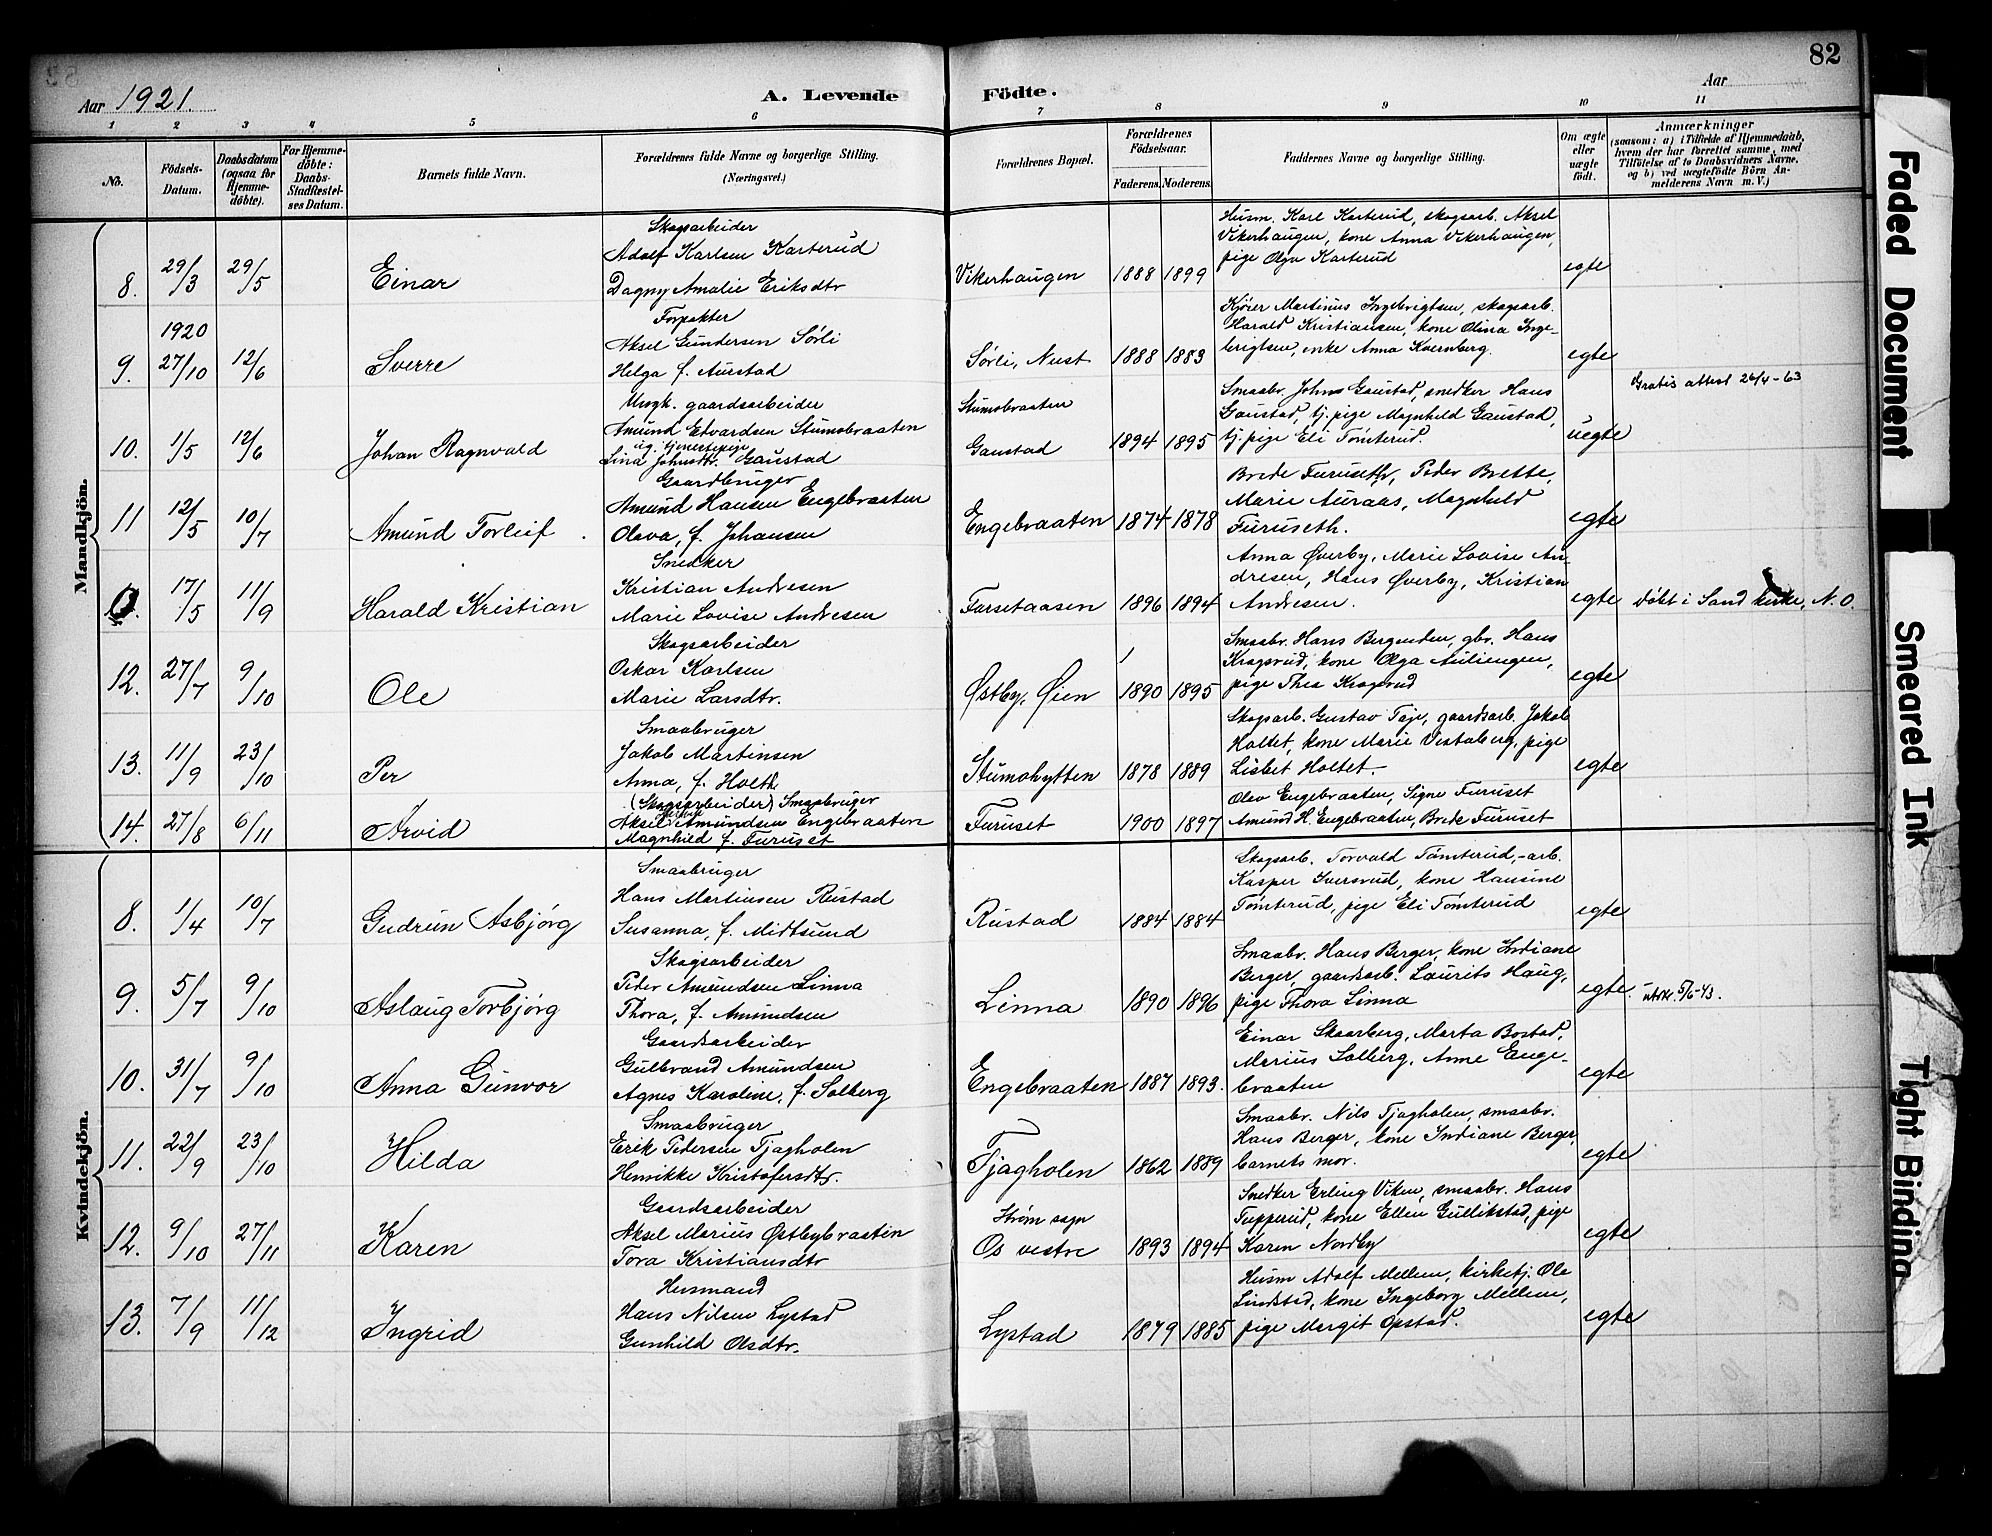 82
Aar 1921.
A. Levende Födte.
Aar
1 2 3 4 5 6 7 8 9 10 11
No.
Födsels-Datum.
Daabsdatum (ogsaa for Hjemmedöbte).
For Hjemmedöbte: Daabs-Stadfestelses Datum.
Barnets fulde Navn.
Forældrenes fulde Navne og borgerlige Stilling.
(Næringsvei.)
Forældrenes Bopæl.
Forældrenes Födselsaar.
Faderens. Moderens.
Faddernes Navne og borgerlige Stilling.
Om ægte eller uægte født.
Anmærkninger
(saasom: a) i Tilfælde af Hjemmedaab, hvem der har forrettet samme, med Tilföielse af to Daabsvidners Navne, og b) ved uægtefödte Börn Anmelderens Navn m. V.)
Mandkjön.
Skogsarbeider
Husm. Karl Karterud, skogsarb. Aksel
Adolf Karlsen Karterud
Vikerhaugen, kone Anna Vikerhaugen,
8. 29/3 29/5 Einar
Dagny Amalie Eriksdtr
Vikerhaugen 1888 1899
pige Olga Karterud
egte
Forpakter
Kjører Martinus Ingebrigtsen, skogsarb.
1920
Aksel Gundersen Sørli
Harald Kristiansen, kone Olina Inge-
9. 27/10 12/6 Sverre
Helga f. Aurstad
Sørli, Nust 1888 1883
brigtsen, enke Anna Kvernberg.
egte
Gratis attest 26/4-63
Ungk. gaardsarbeider
Stumobraaten
Smaabr. Johns Gaustad, snedker Hans
Amund Edvardsen Stumobraaten
Gaustad, tj. pige Magnhild Gaustad,
10. 1/5 12/6 Johan Ragnvald
ug. tjenestepige
Lina Johnsdtr. Gaustad
Gaustad 1894 1895
tj. pige Eli Tømterud.
uegte
Gaardbruger
Brede Furuseth, Peder Brette,
Amund Hansen Engebraaten
Marie Auraas, Magnhild
11 12/5 10/7 Amund Torleif
Olava, f. Johansen
Engebraaten 1874 1878
Furuseth.
egte
Snedker
Anna Øverby, Marie Lovise An-
Kristian Andresen
dresen, Hans Øverby, Kristian
0. 17/5 11/9 Harald Kristian
Marie Lovise Andresen
Farsetaasen 1896 1894
Andresen.
egte
Døbt i Sand kirke, N. O.
Skogsarbeider
Smaabr. Hans Bergenden, gbr. Hans
Oskar Karlsen
Kragsrud, kone Olga Auliengen,
12. 27/7 9/10 Ole
Marie Larsdtr.
Østby, Øien 1890 1895
pige Thea Kragsrud
egte
Smaabruger
Skogsarb. Gustav Toje, gaardsarb. Jakob
Jakob Martinsen
Holtet, kone Marie Vestaberg, pige
13. 11/9 23/10 Per
Anna, f. Holth
Stumohytten 1878 1889
Lisbet Holtet.
egte
(Skogsarbeider) Smaabruger
Olav Engebraaten, Signe Furuset
14. 27/8 6/11 Arvid
Aksel Amundsen Engebraaten
Magnhild f. Furuset
Furuset 1900 1897
Amund H. Engebraaten, Brede Furuset
Kvindekjön.
Smaabruger
Skogsarb. Torvald Tømterud, -arb.
Hans Martinsen Rustad
Kasper Iversrud, kone Hansine
8. 1/4 10/7 Gudrun Asbjörg
Susanna, f. Midtsund
Rustad 1884 1884
Tømterud, pige Eli Tømterud
egte
Skogsarbeider
Smaabr. Hans Berger, kone Indiane
Peder Amundsen Linna
Berger, gaardsarb. Laurits Haug,
9. 5/7 9/10 Aslaug Torbjörg
Thora, f. Amundsen
Linna 1890 1896
pige Thora Linna
egte.
utskr. 5/6-43.
Gaardsarbeider
Einar Skaarberg, Marta Bostad,
Gulbrand Amundsen
Marius Solberg, Anne Enge-
10. 31/7 9/10 Anna Gunvor
Agnes Karoline, f. Solberg
Engebraaten 1887 1893.
braaten
egte
Smaabruger
Smaabr. Nils Tjagholen, smaabr.
Erik Pedersen Tjagholen
Hans Berger, kone Indiane Berger,
11. 22/9 23/10 Hilda
Henrikke Kristofersdtr.
Tjagholen 1862 1889
barnets mor.
egte
Gaardsarbeider
Snedker Erling Viken, smaabr. Hans
Aksel Marius Østbybraaten
Strøm sogn
Tupperud, kone Ellen Gullikstad, pige
12. 9/10 27/11 Karen
Tora Kristiansdtr
Os vestre 1893 1894
Karen Nordby
egte
Husmand
Husm Adolf Mellem, kirketj. Ole
Hans Nilsen Lystad
Lindstad, kone Ingeborg Mellem,
13. 7/9 11/12 Ingrid
Gunhild Olsdtr.
Lystad 1879 1885
pige Margit Opstad.
egte
Faded Document
Smeared Ink
Tight Binding